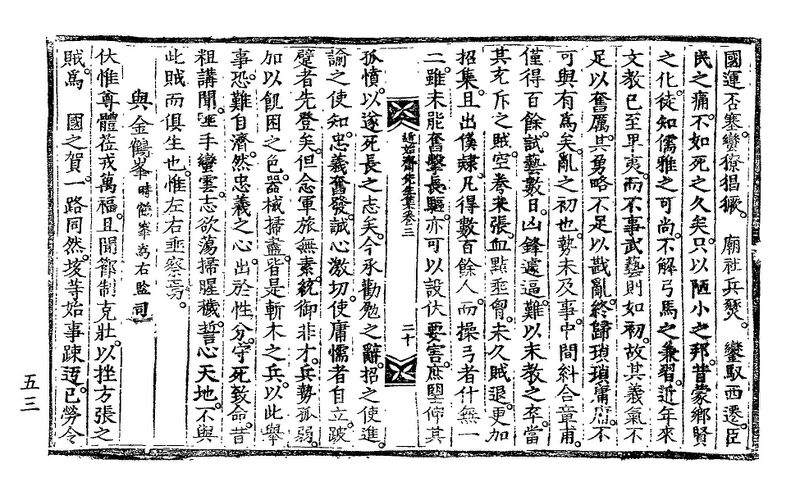 國運否塞蠻獠猖獗 廟社兵燹 鑾馭西遷臣
民之痛不如死之久矣只以陋小之邦昔蒙鄉賢
之化徒知儒雅之可尚不解弓馬之兼習近年來
文教已至卑夷而不事武藝則如初故其義氣不
足以奮厲其勇略不足以戡亂終歸瑣瑣庸庸不
可與有爲矣亂之初也勢未及事中間糾合章甫
僅得百餘試藝數日凶鋒遽逼難以末教之卒當
其充斥之賊空弮來張血點垂胷未久賊退更加
招集且出僕隸凡得數百餘人而操弓者什無一
二雖未能奮擊長驅亦可以設伏要害庶塹倅其
齊先生文集卷之三
二十
孤憤以遂死長之志矣今承勸勉之辭招之使進
諭之使知忠義奮發誠心激切使庸懦者自立跛
躄者先登矣但念軍旅無素統御非才兵勢孤弱
加以飢困之色器械掃盡皆是斬木之兵以此舉
事恐難自濟然忠義之心出於性分守死致命昔
粗講聞手蠻雲志欲蕩掃腥穢誓心天地不與
此賊而俱生也惟左右垂察焉
與金鶴峯 時鶴峯爲右監司
伏惟尊體莅戎萬福且聞節制克壯以挫方張之
賊爲 國之賀一路同然埈等始事疎迃已勞令
五三